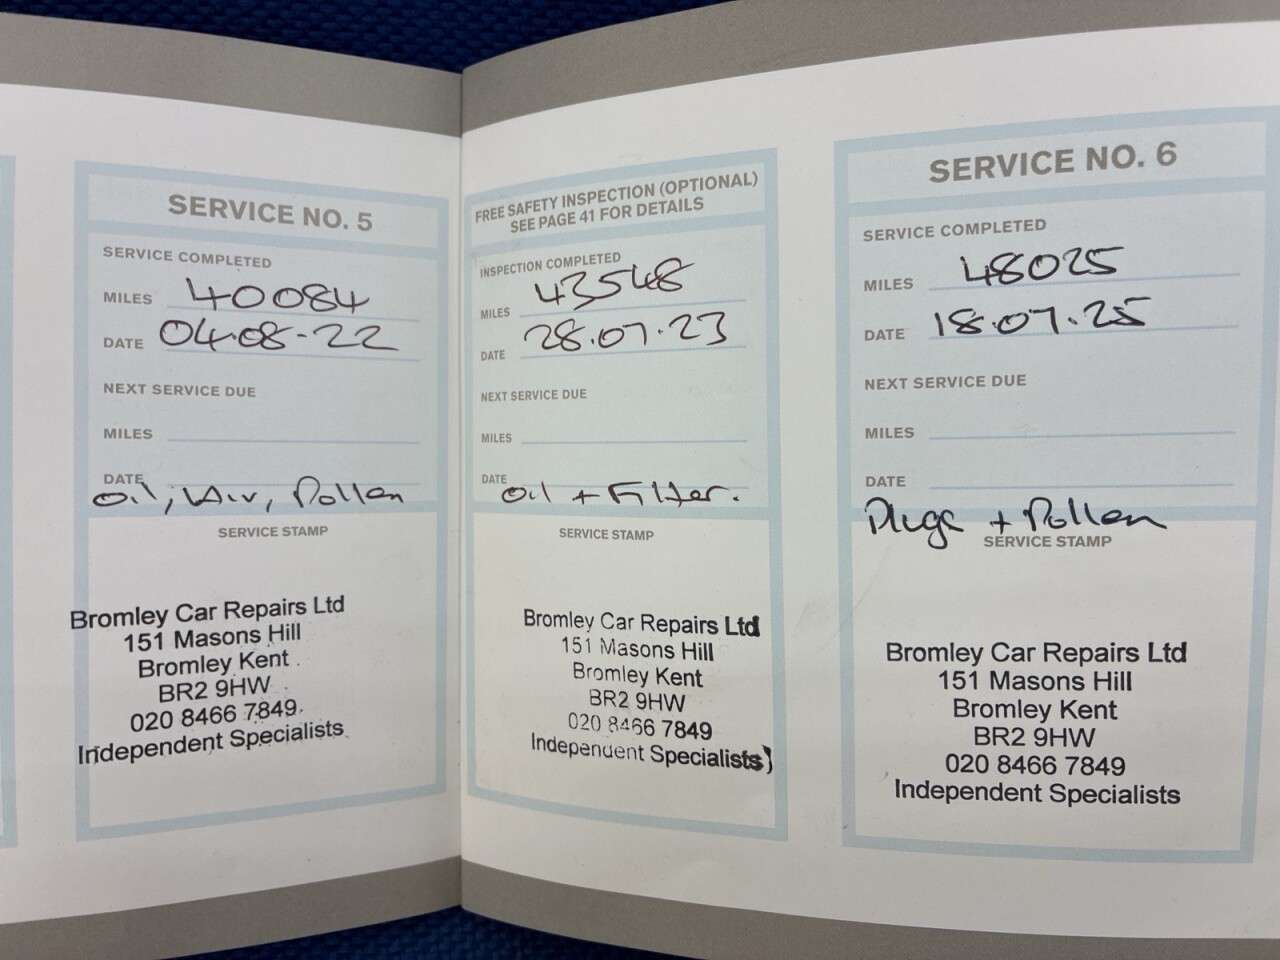 SERVICE NO. 5
SERVICE COMPLETED
MILES 40084
DATE 04.08-22
NEXT SERVICE DUE
MILES
DATE
Oil, Air, Pollen
SERVICE STAMP
Bromley Car Repairs Ltd
151 Masons Hill
Bromley Kent
BR2 9HW
020 8466 7849
Independent Specialists
FREE SAFETY INSPECTION (OPTIONAL)
SEE PAGE 41 FOR DETAILS
INSPECTION COMPLETED
MILES 43548
DATE 28.07.23
NEXT SERVICE DUE
MILES
DATE
Oil + Filter.
SERVICE STAMP
Bromley Car Repairs Ltd
151 Masons Hill
Bromley Kent
BR2 9HW
020 8466 7849
Independent Specialists
SERVICE NO. 6
SERVICE COMPLETED
MILES 48025
DATE 18.07.25
NEXT SERVICE DUE
MILES
DATE
Plugs + Pollen
SERVICE STAMP
Bromley Car Repairs Ltd
151 Masons Hill
Bromley Kent
BR2 9HW
020 8466 7849
Independent Specialists